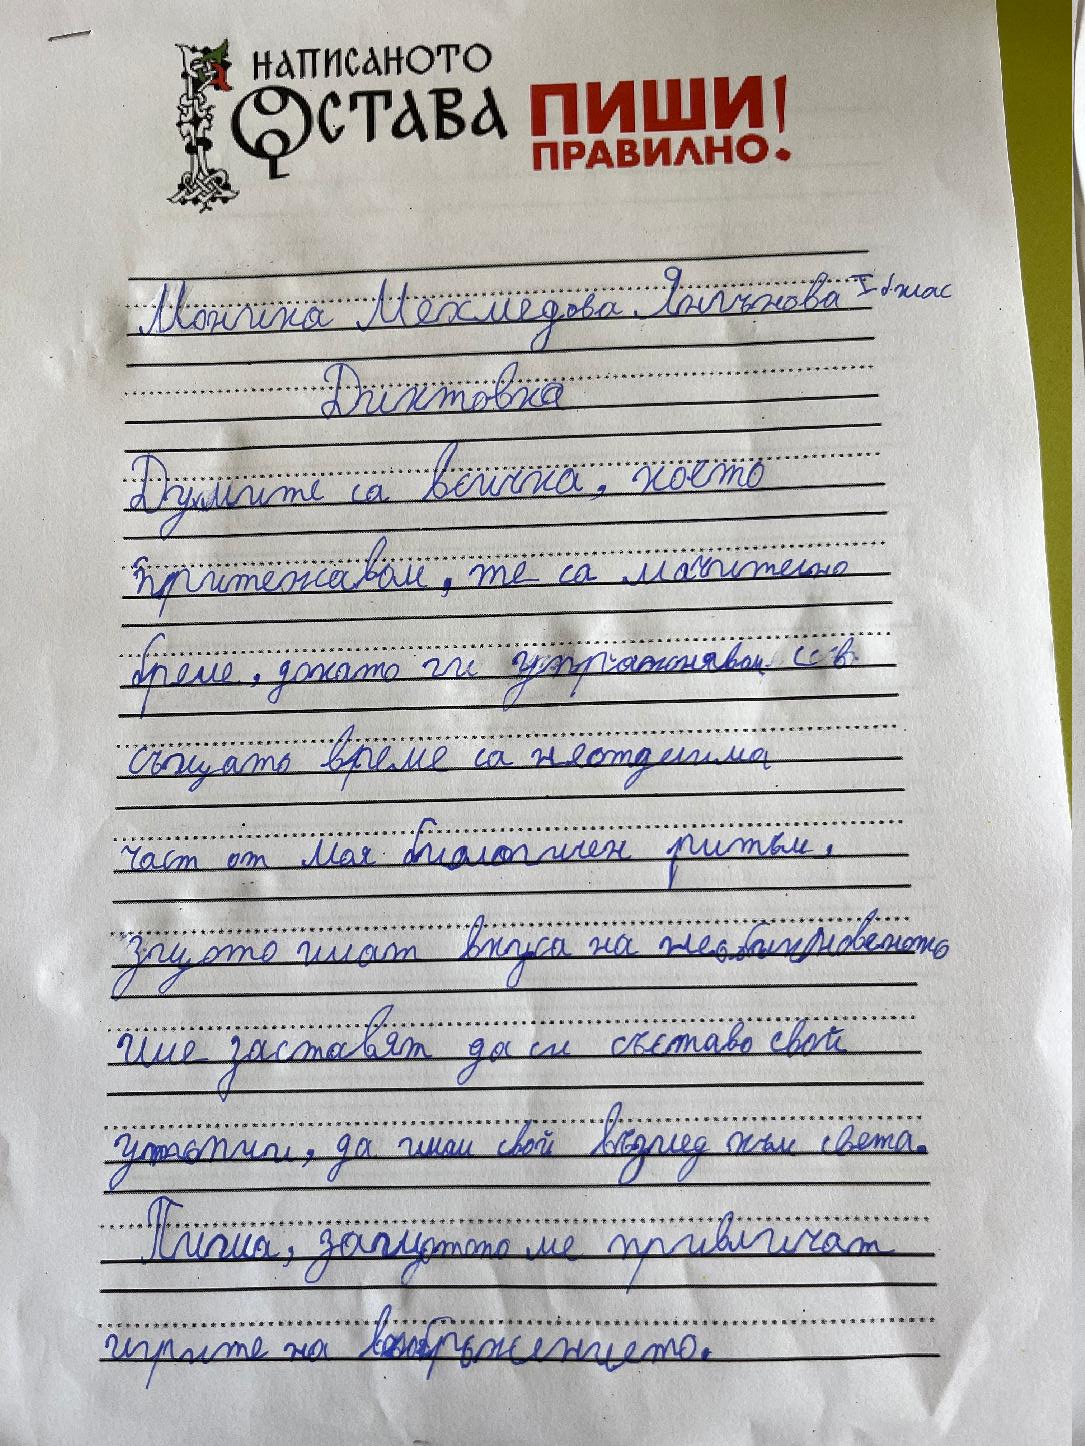 НАПИСАНОТО
ОСТАВА
ПИШИ!
ПРАВИЛНО.
Моника Мехмедова
Диктовка
Думите са всичка, което
притежавам, те са мъчително
бреме, докато ги упражнявам и в
същато време са неотделима
част от моя биологичен ритъм,
имат вкуса на необикновеното
име заставят да си съставо свой
утопии, да имам свой възглед към света.
Пиша, защотото ме привличат
игрите на